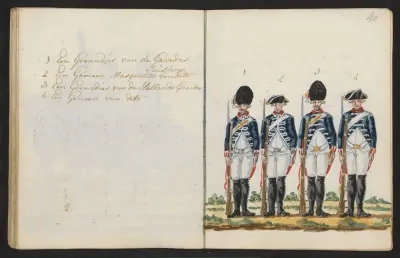 1 Een Grenadier van de Guardes
Suisses
2 Een Gemeen Musquettier van dito
3 Een Grenadier van de Hollands Guardes
4 Een Gemeen van dito
1 2 3 4